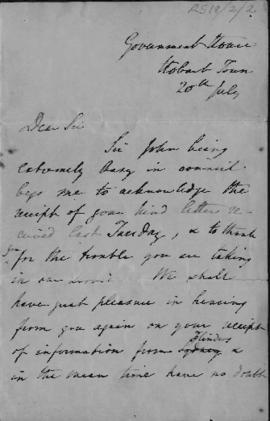 RS19/2/2
Government House
Hobart Town
20th July
Dear Sir
Sir John being
extremely busy in council
begs me to acknowledge the
receipt of your kind letters re
ceived last Tuesday, & to thank
you for the trouble you are taking
in our We shall
have just pleasure in hearing
from you again on your receipt
of information from Sydney Flinders &
in the mean time have no doubt